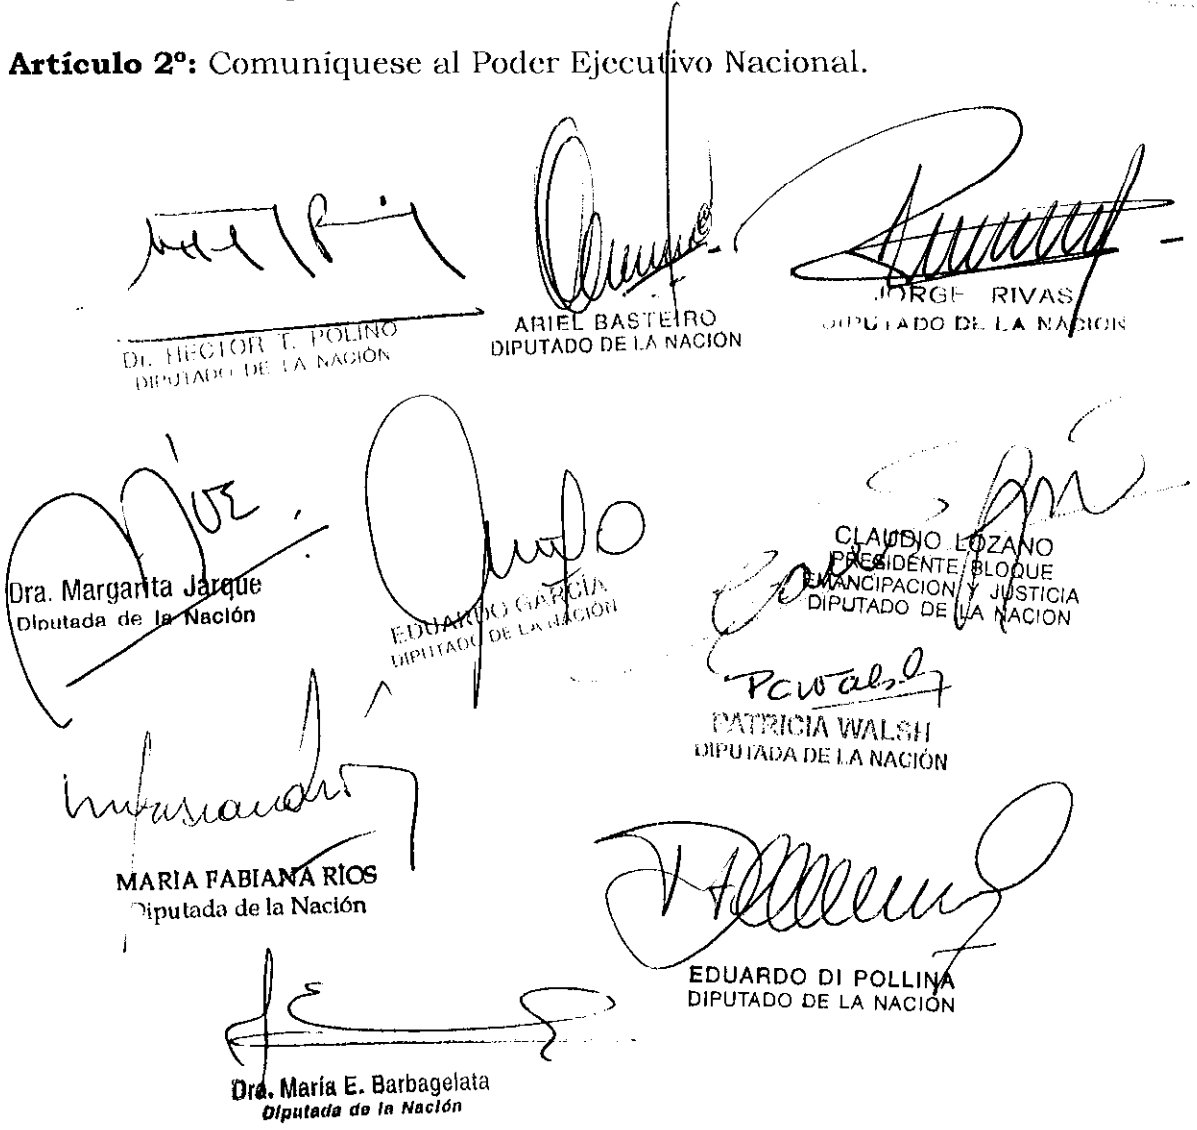 Artículo 2º: Comuníquese al Poder Ejecutivo Nacional.
Dr. HECTOR T. POLINO
DIPUTADO DE LA NACIÓN
ARIEL BASTEIRO
DIPUTADO DE LA NACION
JORGE RIVAS
DIPUTADO DE LA NACION
Dra. Margarita Jarque
Diputada de la Nación
EDUARDO GARCÍA
DIPUTADO DE LA NACIÓN
CLAUDIO LOZANO
PRESIDENTE BLOQUE
EMANCIPACION Y JUSTICIA
DIPUTADO DE LA NACION
PCWalsh
PATRICIA WALSH
DIPUTADA DE LA NACIÓN
MARIA FABIANA RÍOS
Diputada de la Nación
EDUARDO DI POLLINA
DIPUTADO DE LA NACIÓN
Dra. María E. Barbagelata
Diputada de la Nación